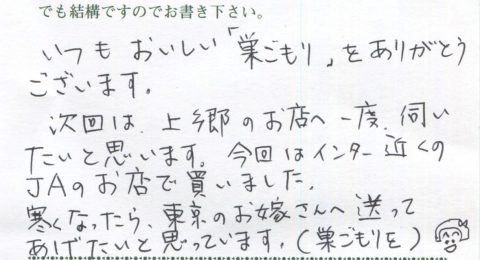 でも結構ですのでお書き下さい。
いつもおいしい「巣ごもり」をありがとう
ございます。
次回は、上郷のお店へ一度、伺い
たいと思います。今回はインター近くの
JAのお店で買いました。
寒くなったら、東京のお嫁さんへ送って
あげたいと思っています。(巣ごもりを)